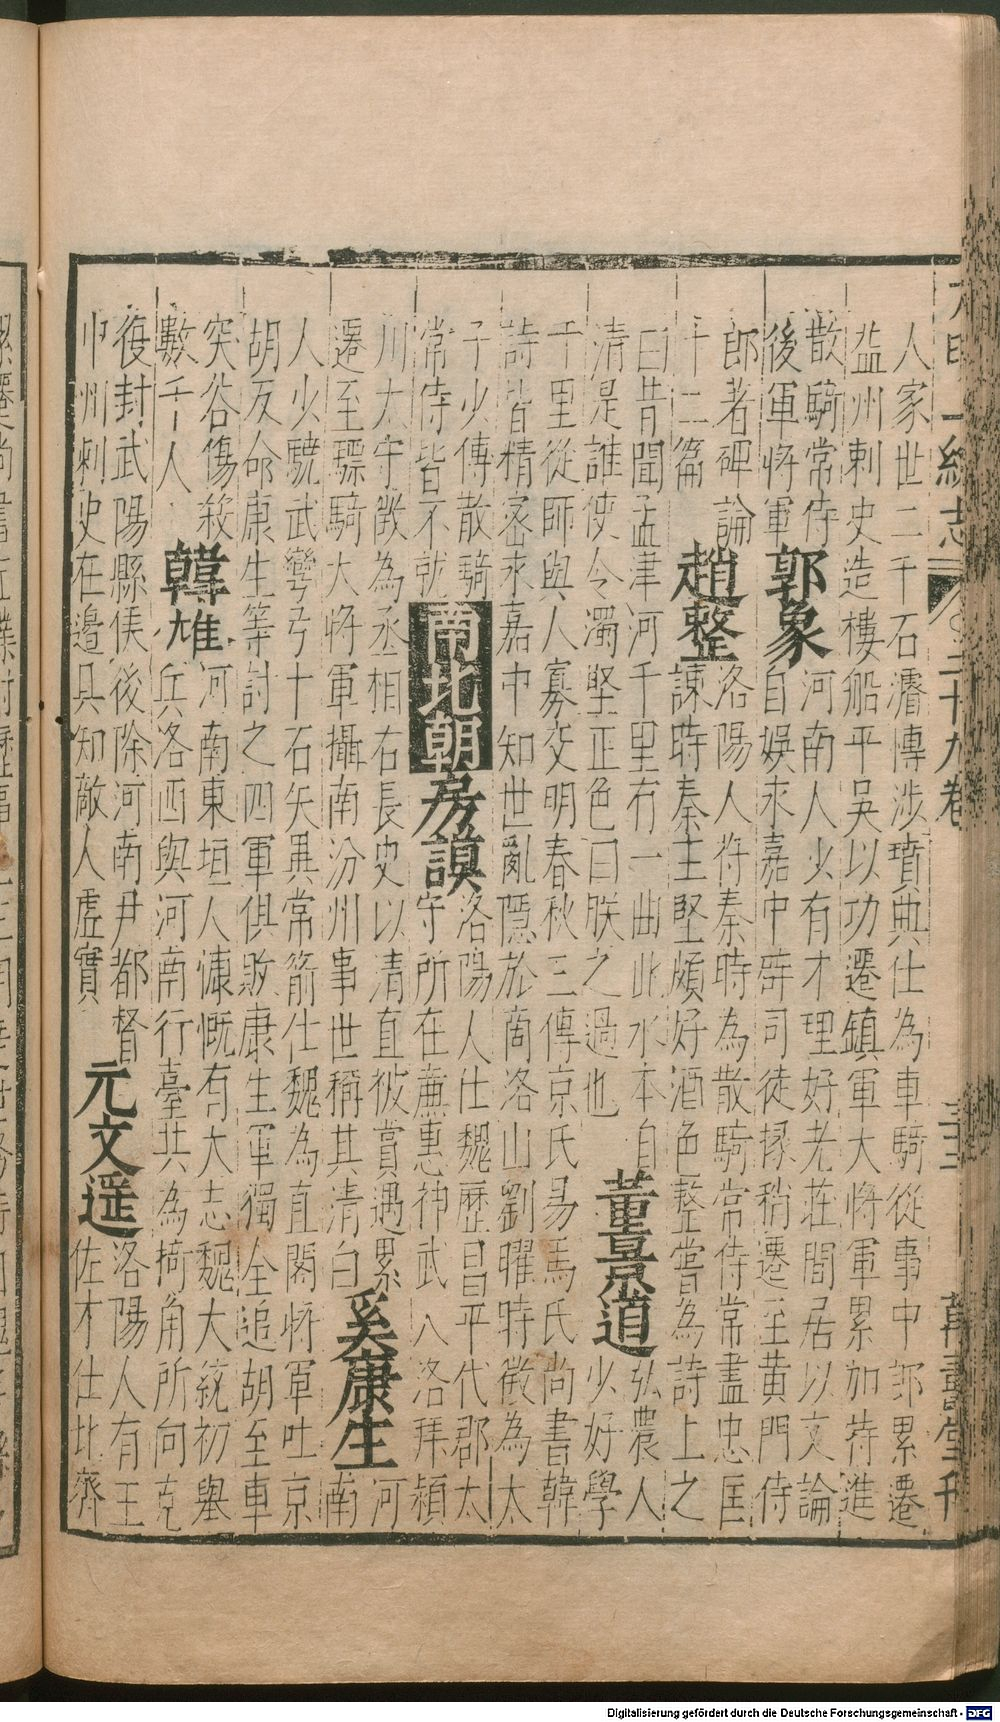 大明一統志 二十九卷 三十三
人家世二千石濬博涉墳典仕為車騎從事中郎累遷
益州刺史造樓船平吳以功遷鎮軍大將軍累加特進
散騎常侍 郭象 河南人少有才理好老莊閒居以文論
自娛永嘉中辟司徒掾稍遷至黃門侍
後軍將軍 趙整 洛陽人符秦時為散騎常侍常盡忠匡
郎著碑論 諫時秦主堅頗好酒色整嘗為詩上之
十二篇
曰昔聞孟津河千里有一曲此水本自 董景道 弘農人
清是誰使令濁堅正色曰朕之過也 少好學
千里從師與人寡交明春秋三傳京氏易馬氏尚書韓
詩皆精密永嘉中知世亂隱於商洛山劉曜時徵為太
子少傅散騎 南北朝 房謨 洛陽人仕魏歷昌平代郡太
常侍皆不就 守所在廉惠神武入洛拜潁
川太守徵為丞相右長史以清直被賞遇累 奚康生 河
遷至驃騎大將軍攝南汾州事世稱其清白 南
人少驍武彎弓十石矢異常箭仕魏為直閣將軍吐京
胡反命康生等討之四軍俱敗康生軍獨全追胡至車
突谷傷殺 韓雄 河南東垣人慷慨有大志魏大統初舉
數千人 兵洛西與河南行臺共為掎角所向克
復封武陽縣侯後除河南尹都督 元文遥 洛陽人有王
中州刺史在邊具知敵人虛實 佐才仕北齊
Digitalisierung gefördert durch die Deutsche Forschungsgemeinschaft - DFG